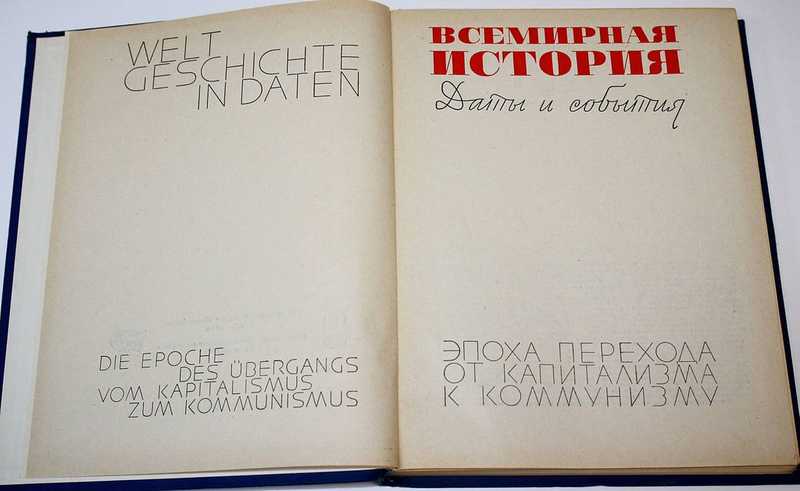 WELT
GESCHICHTE
IN DATEN
DIE EPOCHE
DES ÜBERGANGS
VOM KAPITALISMUS
ZUM KOMMUNISMUS
ВСЕМИРНАЯ
ИСТОРИЯ
Даты и события
ЭПОХА ПЕРЕХОДА
ОТ КАПИТАЛИЗМА
К КОММУНИЗМУ